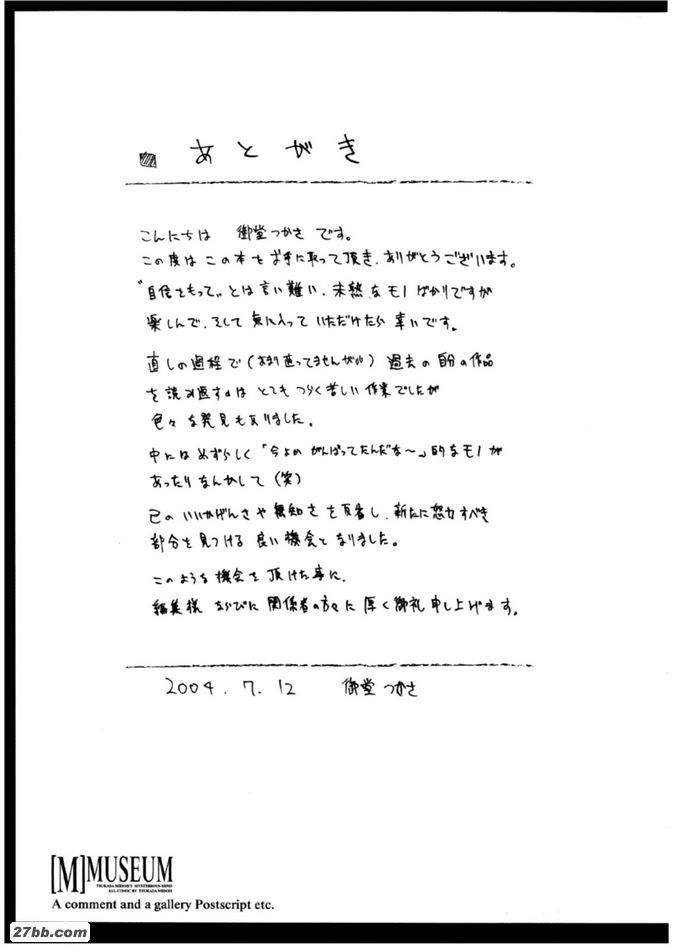 あとがき
こんにちは 御堂つかさです。
この度はこの本をお手に取って頂き、ありがとうございます。
"自信をもって"とは言い難い、未熟なモノばかりですが
楽しんで、そして気に入っていただけたら幸いです。
直しの過程で(あまり直ってませんが) 過去の自分の作品
を読み返すのはとてもつらく苦しい作業でしたが
色々な発見もありました。
中にはめずらしく「今よりがんばってたんだな〜」的なモノが
あったりなんかして(笑)
己のいいかげんさや無知さを反省し、新たに努力すべき
部分を見つける良い機会となりました。
このような機会を頂けた事に、
編集様 ならびに関係者の方々に厚く御礼申し上げます。
2004.7.12 御堂つかさ
[M]MUSEUM
TSUKASA MIDOH'S MYSTERIOUS MIND
ALL COMIC BY TSUKASA MIDOH
A comment and a gallery Postscript etc.
27bb.com